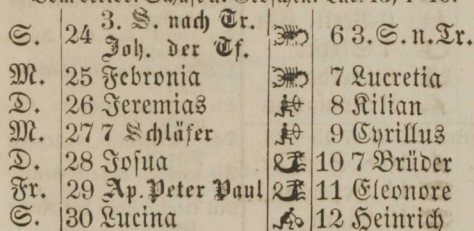 3. S. nach Tr.
S. 24 Joh. der Tf. 6 3. S. n. Tr.
M. 25 Febronia 7 Lucretia
D. 26 Jeremias 8 Kilian
M. 27 7 Schläfer 9 Cyrillus
D. 28 Josua 10 7 Brüder
Fr. 29 Ap. Peter Paul 11 Eleonore
S. 30 Lucina 12 Heinrich